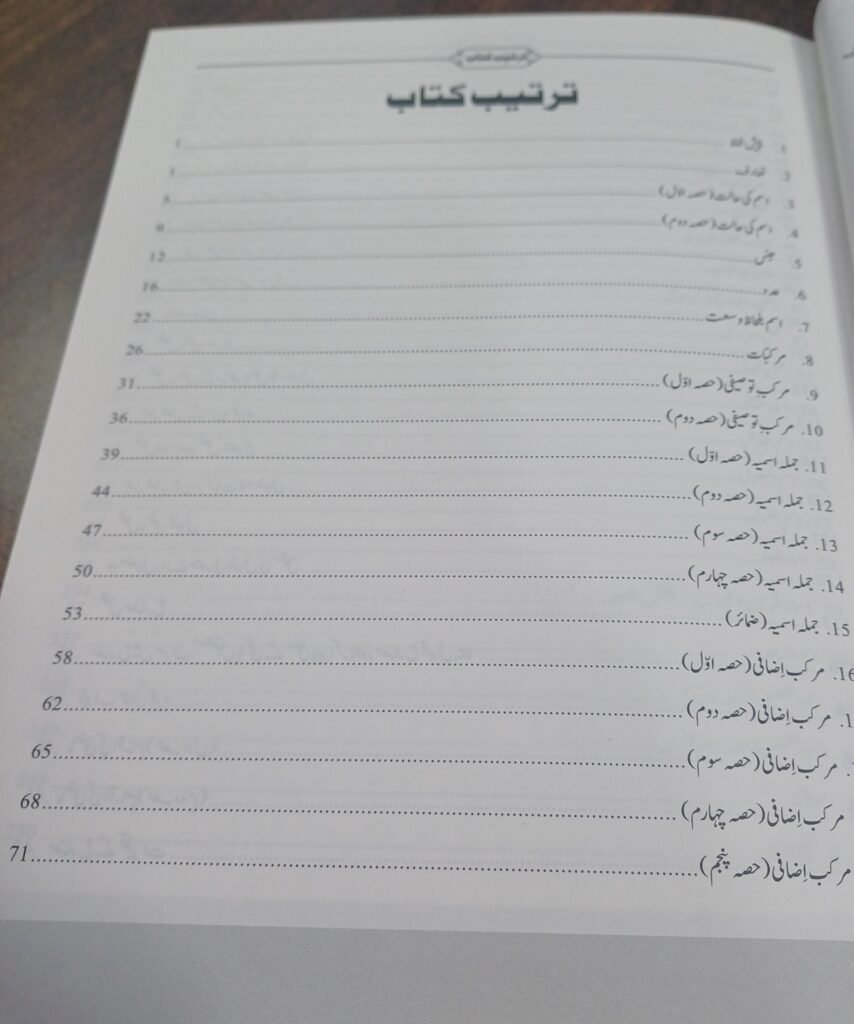 ترتیب کتاب
ترتیب کتاب
1. پیش لفظ 1
2. تعارف 3
3. اسم کی حالت (حصہ اوّل) 5
4. اسم کی حالت (حصہ دوم) 9
5. جنس 12
6. عدد 16
7. اسم بلحاظ وسعت 22
8. مرکبات 26
9. مرکبِ توصیفی (حصہ اوّل) 31
10. مرکبِ توصیفی (حصہ دوم) 36
11. جملہ اسمیہ (حصہ اوّل) 39
12. جملہ اسمیہ (حصہ دوم) 44
13. جملہ اسمیہ (حصہ سوم) 47
14. جملہ اسمیہ (حصہ چہارم) 50
15. جملہ اسمیہ (ضمائر) 53
16. مرکب اِضافی (حصہ اوّل) 58
1 مرکب اِضافی (حصہ دوم) 62
مرکب اِضافی (حصہ سوم) 65
مرکب اِضافی (حصہ چہارم) 68
مرکب اِضافی (حصہ پنجم) 71